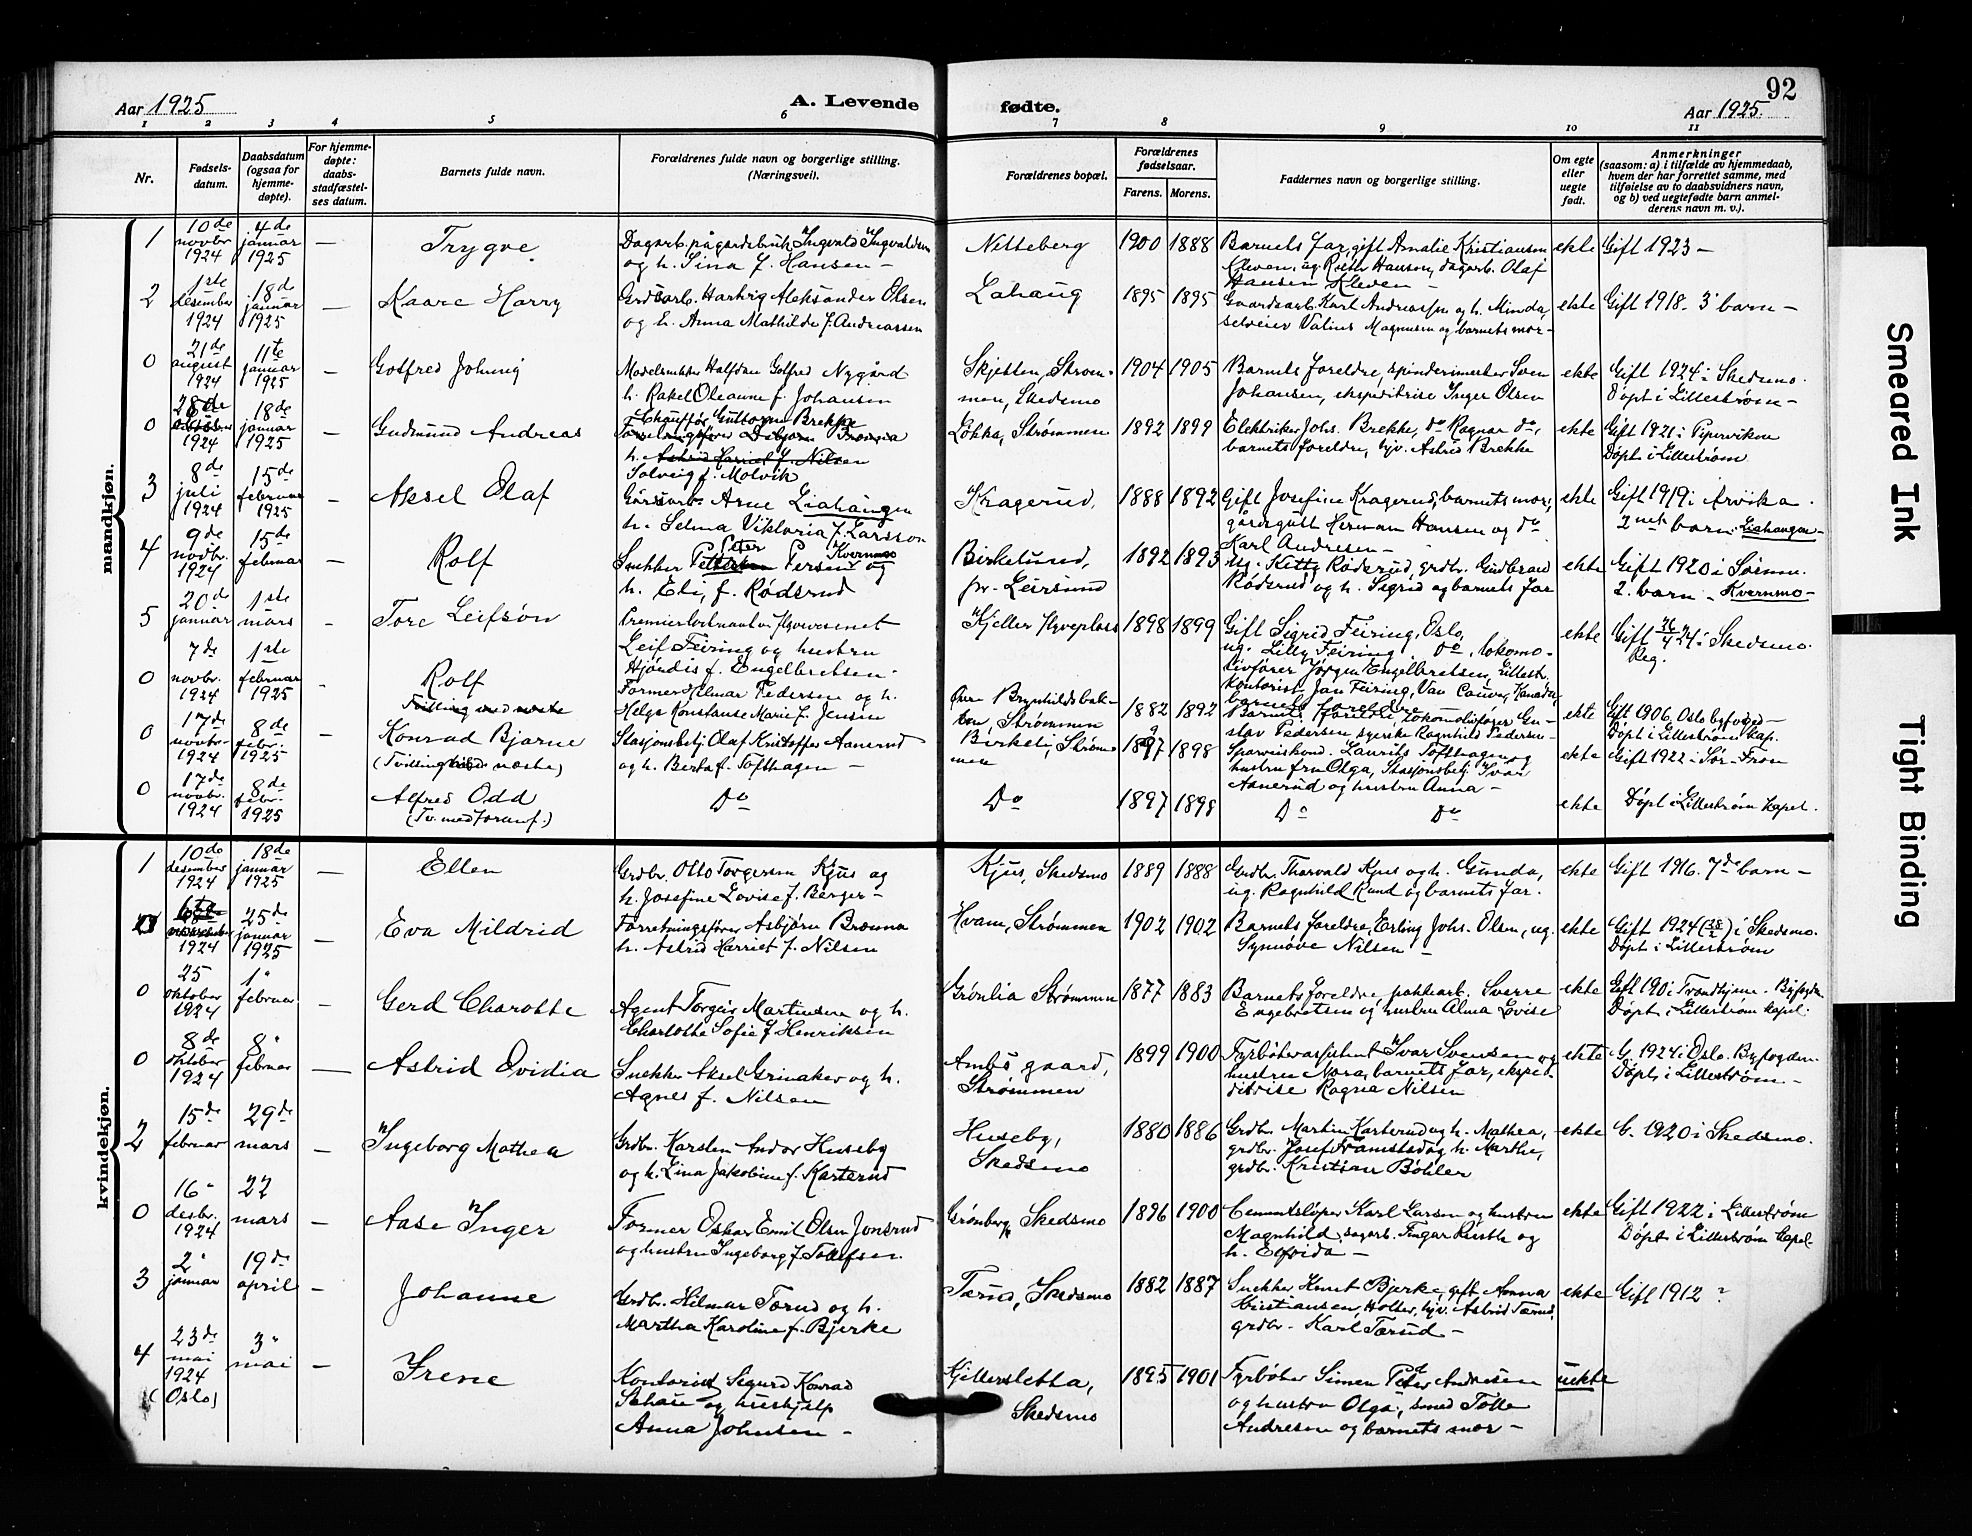 92
Aar 1925
A. Levende fødte.
Aar 1925.
1 2 3 4 5 6 7 8 9 10 11
Nr.
Fødsels-
datum.
Daabsdatum
(ogsaa for
hjemme-
døpte).
For hjemme-
døpte:
daabs-
stadfæstel-
ses datum.
Barnets fulde navn.
Forældrenes fulde navn og borgerlige stilling.
(Næringsvei).
Forældrenes bopæl.
Forældrenes
fødselsaar.
Farens. Morens.
Faddernes navn og borgerlige stilling.
Om egte
eller
uegte
født.
Anmerkninger
(saasom: a) i tilfælde av hjemmedaab,
hvem der har forrettet samme, med
tilføielse av to daabsvidners navn,
og b) ved uegtefødte barn anmel-
derens navn m. v.).
mandkjøn.
1
10de
novbr
1924
4de
januar
1925
—
Trygve.
Dagarb. på gårdsbruk Ingvald Ingvaldsen
og h. Sina f. Hansen —
Nitteberg
1900 1888
Barnets far, gift Amalie Kristiansen
Kleven, ug. Hansen, dagarb. Olaf
Hansen Kleven —
ekte
Gift 1923 —
2
1ste
desember
1924
18d
januar
1925
—
Kaare Harry
Grdsarb. Hartvig Aleksander Olsen
og h. Anna Mathilde f. Andreassen
Lahaug
1895 1895
Gaardsarb. Karl Andreassen og h. Minda,
selveier Valius Magnusen og barnets mor —
ekte
Gift 1918 — 3 barn —
0
21de
august
1924
11te
januar
1925
—
Gotfred Johnny
Modelsnekker Halfdan Gotfred Nygård
h. Rakel Oleanne f. Johansen
Skjetten, Strøm-
men, Skedsmo
1904 1905
Barnets foreldre, spinderimester Sven
Johansen, ekspeditrise Inger Olsen
ekte
Gift 1924 i Skedsmo.
Døpt i Lillestrøm —
0
28de
1924
18de
januar
1925
—
Gudmund Andreas
Chauffør Guttorm Brekke
h. Astrid Harriet f. Nilsen
Solveig f. Molvik
Løkka, Strømmen
1892 1899
Elektriker Johs. Brekke, do Ragnar do,
barnets foreldre, hjv. Astrid Brekke
ekte
Gift 1921 i Pipervikin
Døpt i Lillestrøm
3
8de
juli
1924
15de
februar
1925
—
Aksel Olaf
Gårdsarb. Arne Liahaugen
h. Selma Viktoria f. Larsson
Kragerud,
1888 1892
Gift Josefine Kragerud, barnets mor,
gårdsgutt Herman Hansen og do
Karl Andresen —
ekte
Gift 1919 i Arvika.
2net barn. Liahaugen —
4
9de
novbr.
1924
15de
februar
—
Rolf
Snekker Peter Persen Kvernmo og
h. Eli, f. Rødsrud
Birkelund,
pr. Leirsund
1892 1893
Ug. Kitty Røderud, grdbr. Gudbrand
Røderud og h. Sigrid og barnets far
ekte
Gift 1920 i Sørum.
2. barn — Kvernmo —
5
20de
januar
1ste
mars
—
Tore Leifsøn
Premierløitnant v. Flyvevesenet
Leif Feiring og hustru
Hjørdis f. Engelbretsen —
Kjeller Flyveplass
1898 1899
Gift Sigrid Feiring, Oslo,
ug. Lilly Feiring do, lokomo-
tivfører Jørgen Engelbretsen, Lillestr.
Kontorist Jan Feiring, Van Couver, Kanada,
barnets foreldre
ekte
Gift 26/4 24 i Skedsmo.
Reg.
0
7de
novbr.
1924
1ste
februar
1925
—
Rolf
Tvilling med næste
Former Hilmar Pedersen og h.
Helga Konstanse Marie f. Jensen
Øvre Brynhildsbak-
ken, Strømmen
1882 1892
Barnets foreldre, lokomotivfører Gu-
stav Pedersen, syerske Ragnhild Pedersen —
ekte
Gift 1906, Oslo byfoged —
Døpt i Lillestrøm kap.
0
17de
novbr.
1924
8de
febr.
1925
—
Konrad Bjarne
(Tvilling med næste)
Stasjonsbetj. Olaf Kristoffer Aanerud
og h. Berta f. Tofthagen —
Birkeli, Strøm-
men
1897 1898
Laurits Tofthagen og
hustru fru Olga, Stasjonsbetj. Ivar
Aanerud og hustru Anna —
ekte
Gift 1922 i Sør-Fron
0
17de
novbr.
1924
8de
febr.
1925
Alfred Odd
(Tv. med foranf.)
Do
Do
1897 1898
Do Do
ekte
Døpt i Lillestrøm kapel.
kvindekjøn.
1
10de
desember
1924
18de
januar
1925
—
Ellen
Grdbr. Otto Torgersen Kjus og
h. Josefine Lovise f. Berger —
Kjus, Skedsmo
1889 1888
Grdbr. Thorvald Kjus og h. Gunda,
ug. Ragnhild Rund og barnets far.
ekte
Gift 1916. 7de barn —
0
1924
25de
januar
1925
—
Eva Mildrid
Forretningsfører Asbjørn Brønna
h. Astrid Harriet f. Nilsen
Hvam, Strømmen
1902 1902
Barnets foreldre, Erling Johs. Olsen, ug.
Synnøve Nilsen —
ekte
Gift 1924 (28/2) i Skedsmo.
Døpt i Lillestrøm
0
25
oktober
1924
1"
februar
—
Gerd Charotte
Agent Torgeir Martinsen og h.
Charlotte Sofie f. Henriksen
Grønlia Strømmen
1877 1883
Barnets foreldre, pakkearb. Sverre
Engebretsen og hustru Alma Lovise
ekte
Gift 190 i Trondhjem. Byfogden
Døpt i Lillestrøm kapel.
0
8de
oktober
1924
8"
februar
—
Astrid Ovidia
Snekker Aksel Grinaker og h.
Agnes f. Nilsen
Ambs gaard,
Strømmen
1899 1900
Fyrbøterassistent Ivar Svensen og
hustru Nora, barnets far, ekspe-
ditrise Ragna Nilsen
ekte
G. 1924 i Oslo. Byfogden.
Døpt i Lillestrøm —
2
15de
februar
29de
mars
—
Ingeborg Mathea
Grdbr. Karsten Andor Huseby
og h. Lina Jakobine f. Karterud
Huseby,
Skedsmo
1880 1886
Grdbr. Martin Karterud og h. Mathea,
grdbr. Josef Framstad og h. Marthe,
grdbr. Kristian Bøhler
ekte
G. 1920 i Skedsmo.
0
16"
desbr.
1924
22
mars
—
Aase Inger
Former Oskar Emil Olsen Jonsrud
og hustru Ingeborg f. Tollefsen
Grønberg, Skedsmo
1896 1900
Cementstøper Karl Larsen og hustru
Magnhild, sagarb. Finger og
h. Elvida —
ekte
Gift 1922 i Lillestrøm
Døpt i Lillestrøm kapel —
3
2"
januar
19de
april
—
Johanne
Grdbr. Hilmar Tærud og h.
Martha Karoline f. Bjerke
Tærud, Skedsmo
1882 1887
Snekker Knut Bjerke, gift Anna
Kristiansen, Holter, hjv. Astrid Tærud,
grdbr. Karl Tærud —
ekte
Gift 1912 ?
4
23de
mai
1924
(Oslo)
3"
mai
—
Irene
Kontorist Sigurd Konrad
og hushjelp
Anna Johnsen —
Kjellersletta,
Skedsmo
1895 1901
Fyrbøter Simen Peter Andresen
og hustru Olga, smed Tolle
Andresen og barnets mor —
uekte
Smeared Ink
Tight Binding